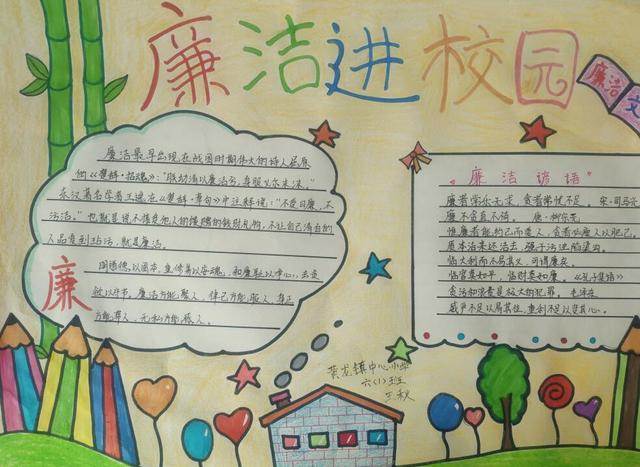 廉洁进校园
廉洁文
廉洁最早出现在战国时期伟大的诗人屈原
的《楚辞·招魂》:"朕幼清以廉洁兮,身服义而未沫。"
东汉著名学者王逸在《楚辞·章句》中注释说:"不受曰廉,不
污曰洁。"也就是说不接受他人的馈赠的钱财礼物,不让自己清白的
人品受到玷污,就是廉洁。
以固本,
廉洁方能聚人,律己方能服人,身正
方能带人,无私方能感人。
廉
廉洁谚语
廉者常乐无求,贪者常忧不足
廉不言贫
惟廉者能约己而爱人,贪者必朘人以肥己。
临大利而不易其义,可谓廉矣。
临官莫如平,临财莫如廉。《孔子集语》
贪污和浪费是极大的犯罪。毛泽东
威尹不足以易其位,重利不足以变其心。
黄龙镇中心小学
六(1)班
王秋